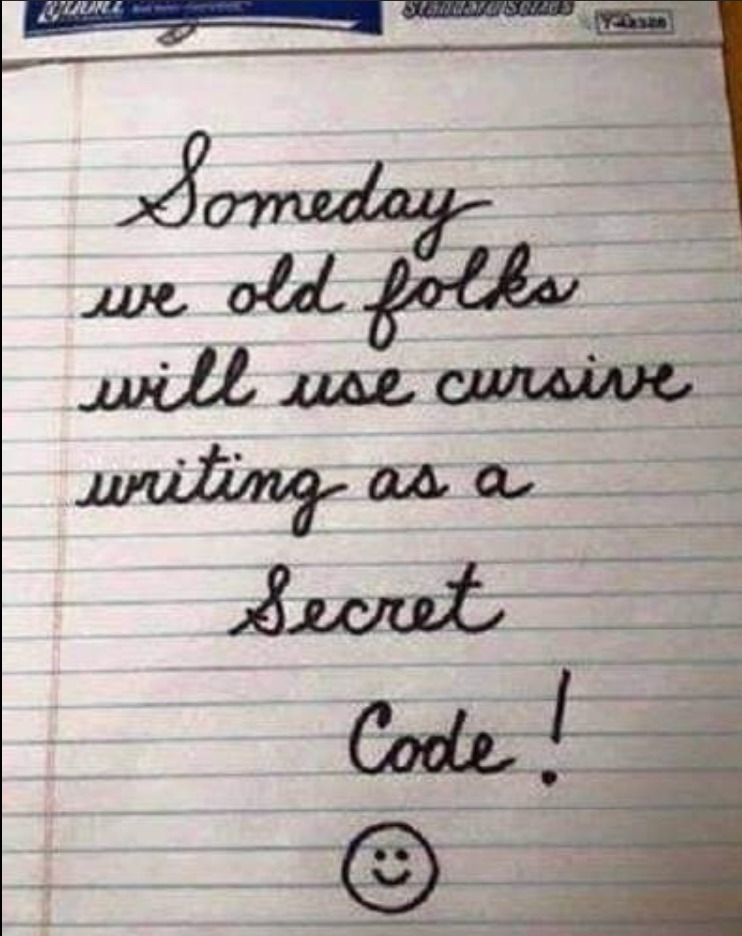 Standard Series
Someday
we old folks
will use cursive
writing as a
Secret
Code!